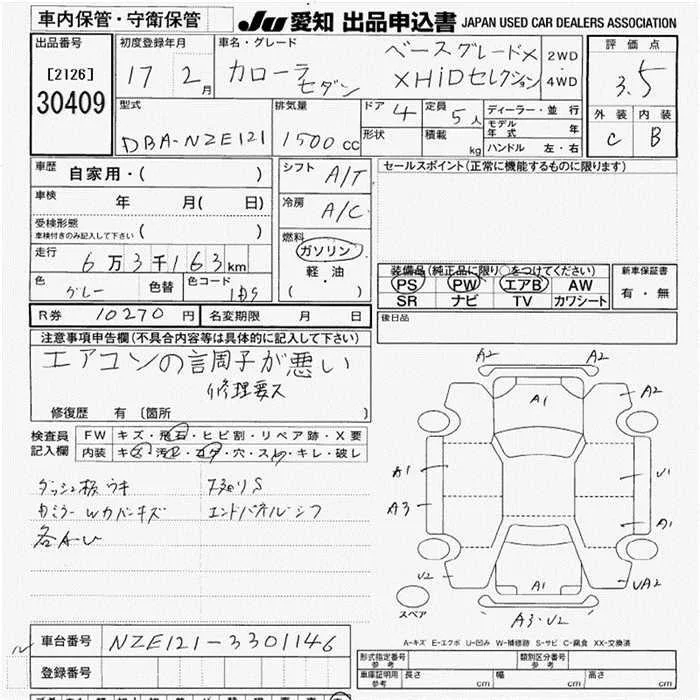 車内保管・守衛保管
JU 愛知 出品申込書 JAPAN USED CAR DEALERS ASSOCIATION
出品番号
[2126]
30409
初度登録年月
17 2月
車名・グレード
カローラ
セダン
ベースグレードX
XHiDセレクション
2WD
・
4WD
評価点
3.5
外装 内装
C B
型式
DBA-NZE121
排気量
1500cc
ドア 4
形状
定員 5人
積載 kg
ディーラー・並行
モデル年式 年
ハンドル 左・右
車歴
自家用・( )
車検
年 月( 日)
受検形態
車検付きのみ記入して下さい ( )
走行
6万3千163km
色
グレー
色替
色コード
シフト
A/T
冷房
A/C
燃料
ガソリン
軽・油
( )
セールスポイント(正常に機能するものに限ります)
装備品(純正品に限り○をつけてください)
PS PW エアB AW
SR ナビ TV カワシート
新車保証書
有・無
R券 10270円
名変期限 月 日
後日品
注意事項申告欄(不具合内容等は具体的に記入して下さい)
エアコンの調子が悪い
修理要ス
修復歴 有 〔箇所 〕
検査員
記入欄
FW キズ・飛石・ヒビ割・リペア跡・X要
内装 キズ・汚レ・コゲ・穴・スレ・キレ・破レ
ダッシュ板ウキ
カミラーWカバーキズ
エンドパネルシフ
各AU
A2 A2
A1
A2
A1
U1
A3
A1
U2
A1
UA2
A3・U2
スペア
A-キズ E-エクボ U-凹み W-補修跡 S-サビ C-腐食 XX-交換済
車台番号
NZE121-3301146
登録番号
形式指定番号
参考
類別区分番号
参考
車庫証明用
参考
長さ cm 幅 cm 高さ cm